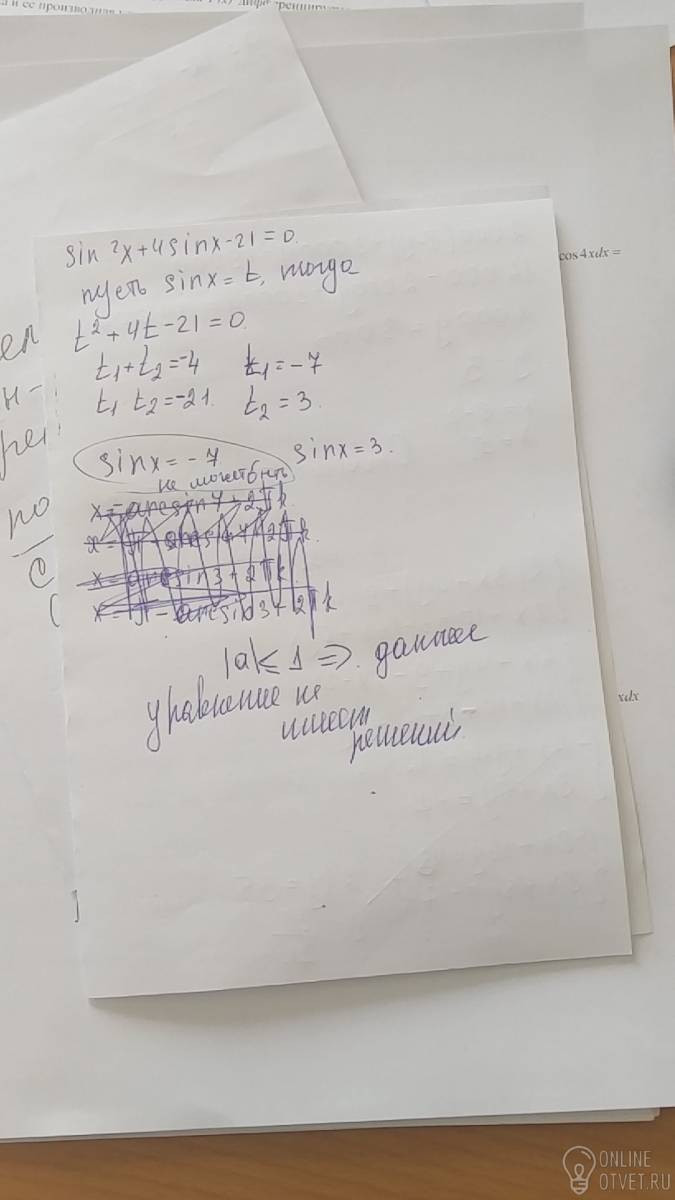 и ее производная
sin²x+4sinx-21=0.
cos4xdx =
пусть sinx=t, тогда
t²+4t-21=0.
t₁+t₂=-4 t₁=-7
t₁ t₂=-21. t₂=3.
sinx=-7 sinx=3.
не может быть
x=arcsin7+2πk
x=π-arcsin7+2πk.
x=arcsin3+2πk
x=π-arcsin3+2πk
|a|≤1 ⇒ данное
уравнение не
имеет
решений.
xdx
ONLINE
OTVET.RU